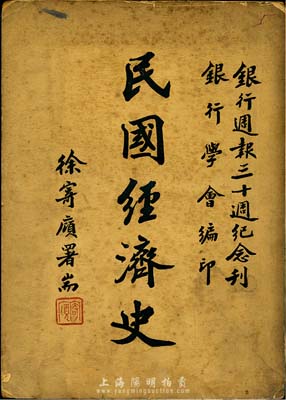 銀行週報三十週紀念刊
銀行學會編印
民國經濟史
徐寄廎署耑
上海陽明拍賣
www.yangmingauction.com